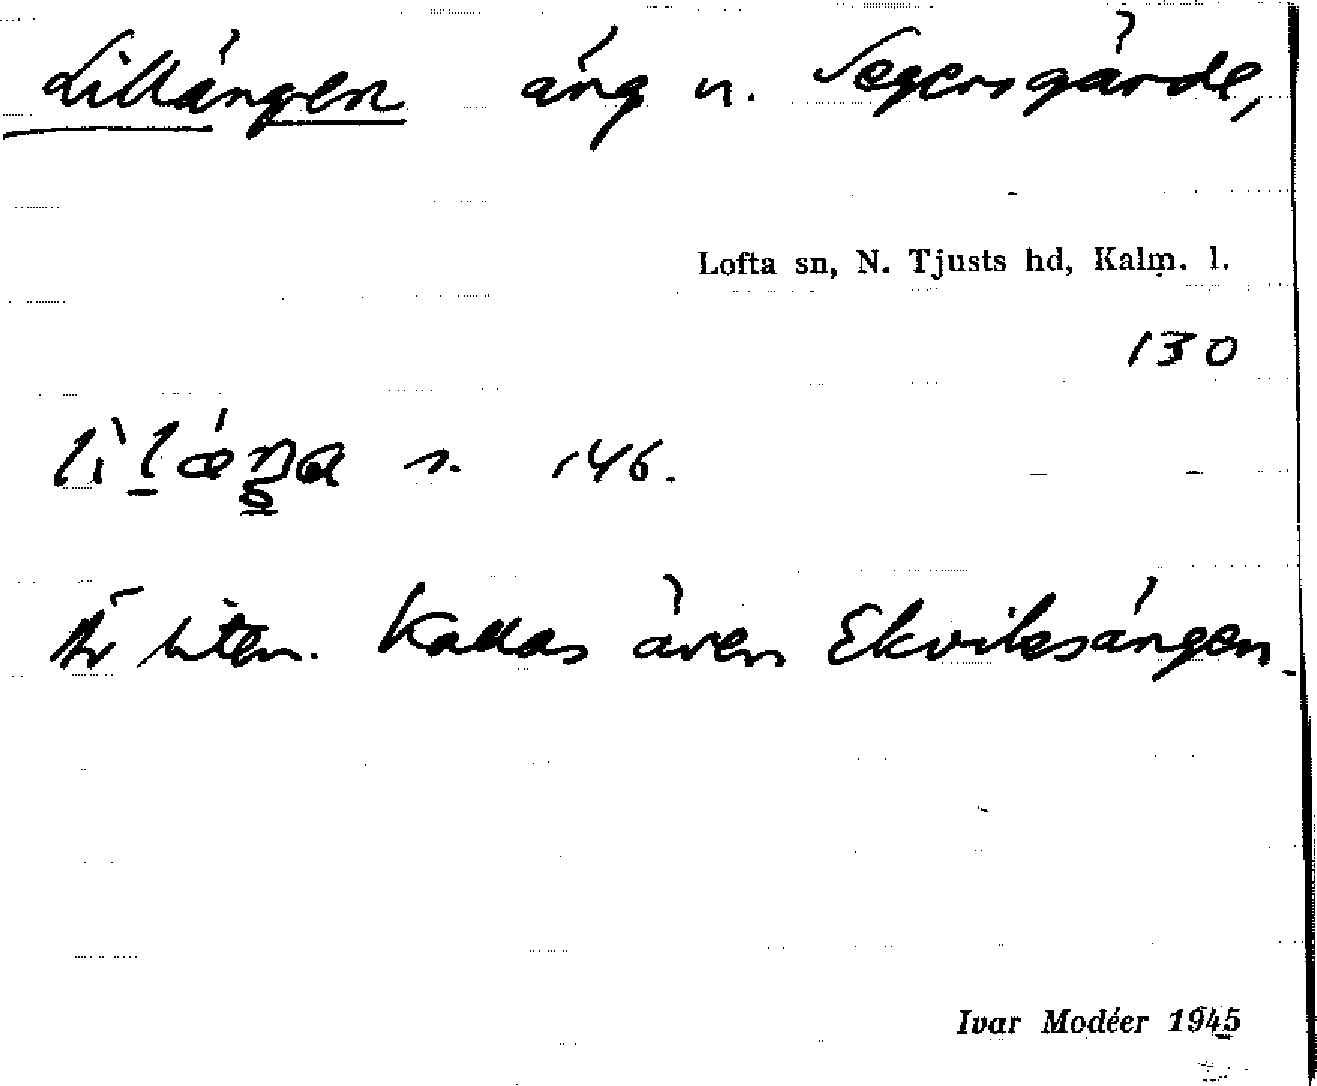 Lillängen äng u. Segersgärde,
Lofta sn, N. Tjusts hd, Kalm. l.
130
s. 146.
Är liten. Kallas även Ekviksängen.
Ivar Modéer 1945